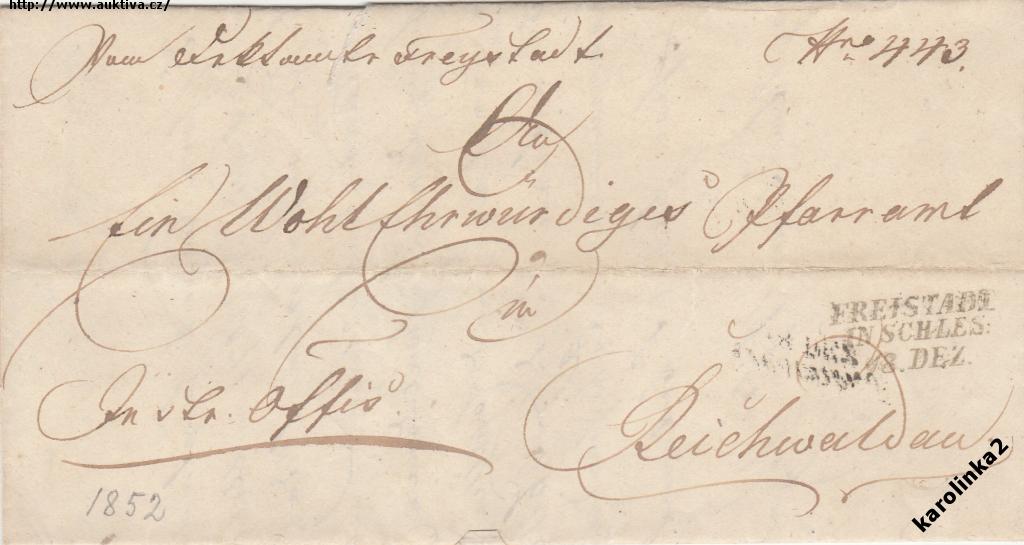 http://www.auktiva.cz/
Vom Freystadt. Nro 443.
An
Ein Wohl Ehrwürdiges Pfarramt
in
FREISTADT
IN SCHLES:
18. DEZ.
Offis.
Reichwaldau
1852
karolinka2